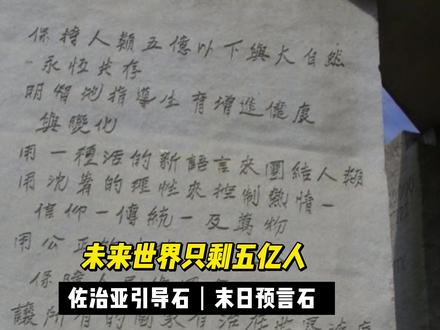 保持人類五億以下與大自然
永恆共存
明智地指導生育增進健康
與變化
用一種活的新語言來團結人類
用沈着的理性來控制熱情一
信仰一傳統一及萬物
用公正的
保障人
讓所有的國家
未来世界只剩五亿人
佐治亚引导石｜末日预言石